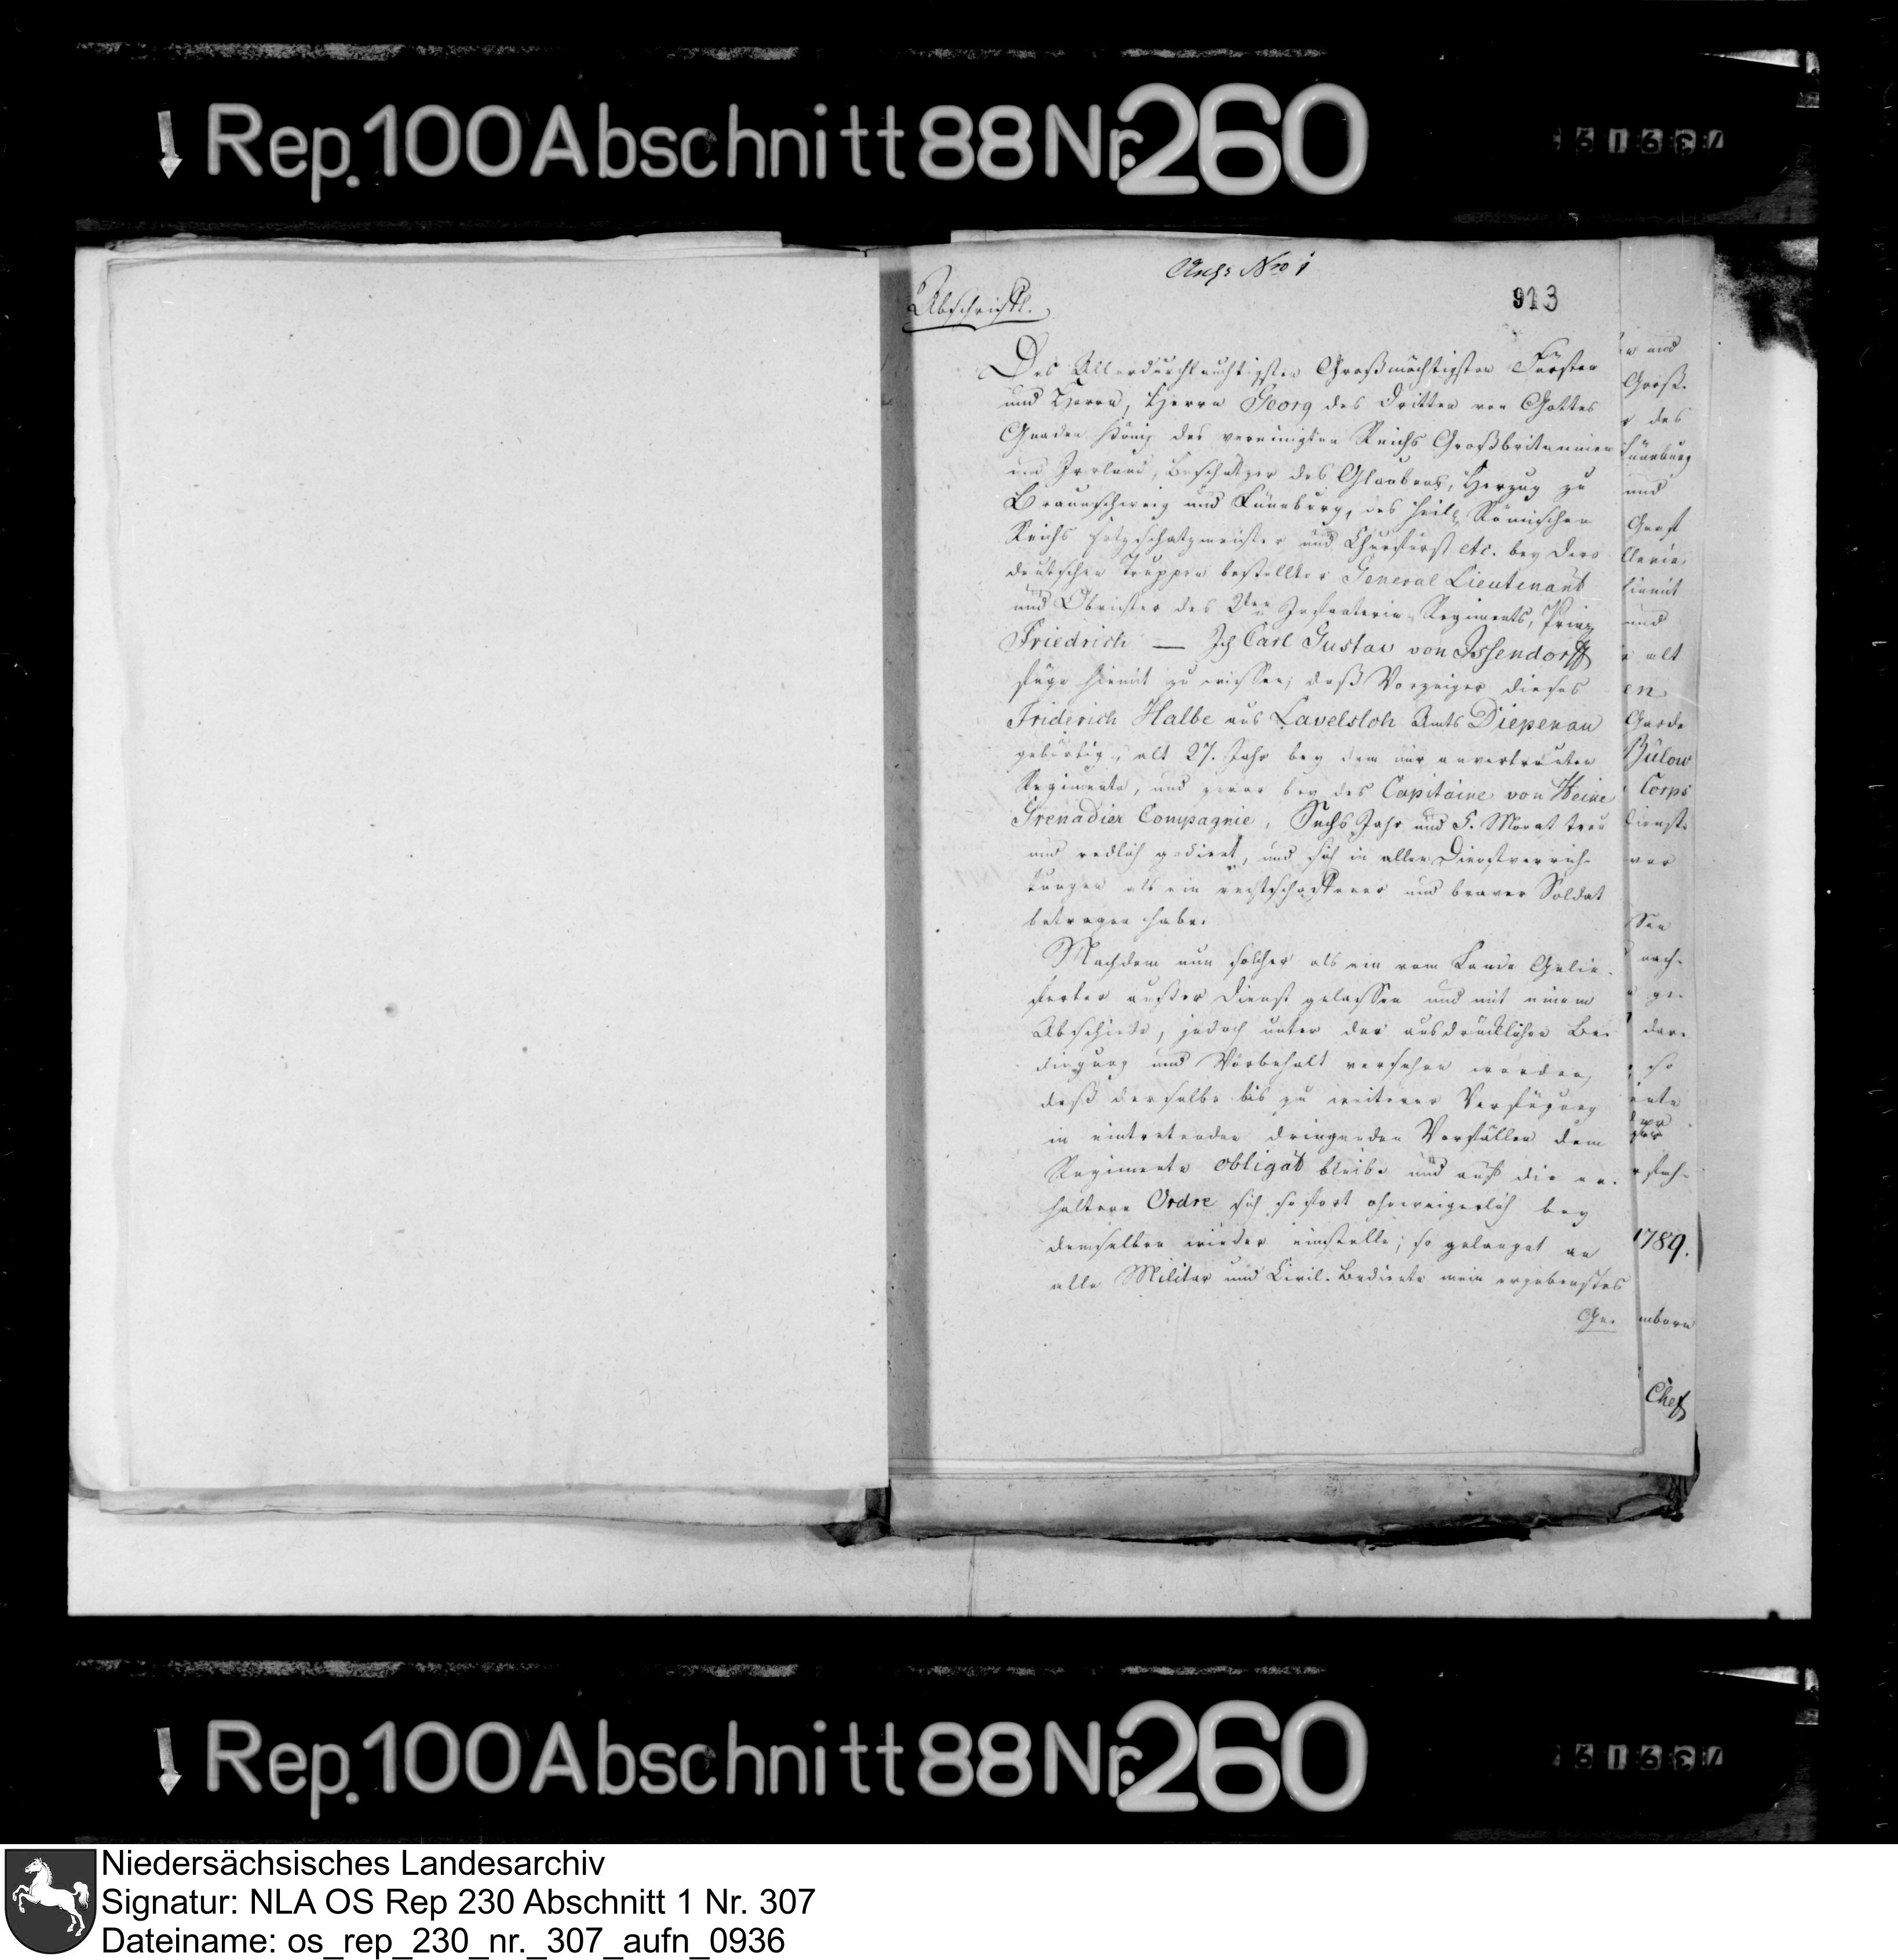 Rep. 100 Abschnitt 88 Nr. 260
Nro 1
Abschriftl.
913
Des Allerdurchlauchtigsten Großmächtigsten Fürsten
und Herrn, Herrn Georg des Dritten von Gottes
Gnaden König des vereinigten Reichs Großbritannien
und Irrland, Beschützer des Glaubens, Herzog zu
Braunschweig und Lüneburg, des heil. Römischen
Reichs Ertzschatzmeister und Churfürst etc. bey dero
deutschen Truppen bestellter General Lieutenant
und Obrister des 2ten Infanterie-Regiments, Prinz
Friedrich — Ich Carl Gustav von Issendorff
füge hiemit zu wissen, daß Vorzeiger dieses
Friderich Halbe aus Lavelsloh Amts Diepenau
gebürtig, alt 27. Jahr bey dem mir anvertrauten
Regimente, und zwar bey des Capitaine von Heine
Grenadier Compagnie, Sechs Jahr und 5. Monat treu
und redlich gedient, und sich in allen Dienstverrich-
tungen als ein rechtschaffener und braver Soldat
betragen habe.
Nachdem nun solcher als ein vom Lande Gelie-
ferter außer Dienst gelassen und mit einem
Abschiede, jedoch unter der ausdrücklichen Be-
dingung und Vorbehalt versehen worden,
daß derselbe bis zu weiterer Verfügung
in eintretenden dringenden Vorfällen dem
Regimente obligat bleibe und auf die er-
haltene Ordre sich sofort ohnweigerlich bey
demselben wieder einstelle; so gelanget an
alle Militar und Civil-Bediente mein ergebenstes
Ge-
und
Groß-
des
Lünburg
und
Graf
llerie
hiemit
und
alt
en
Garde
Bülow
Corps
Dienste
vor
nach-
ge-
dar-
so
1789.
Chef
Rep. 100 Abschnitt 88 Nr. 260
Niedersächsisches Landesarchiv
Signatur: NLA OS Rep 230 Abschnitt 1 Nr. 307
Dateiname: os_rep_230_nr._307_aufn_0936